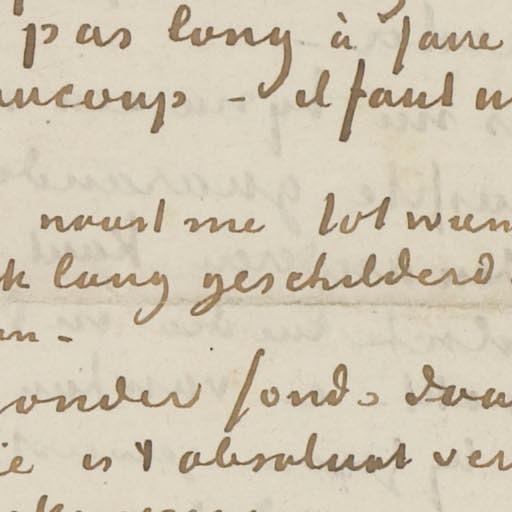 pas long à faire
aucoup - il faut
naast me tot
k lang geschilderd
onder fond
ie is 't absoluut ver